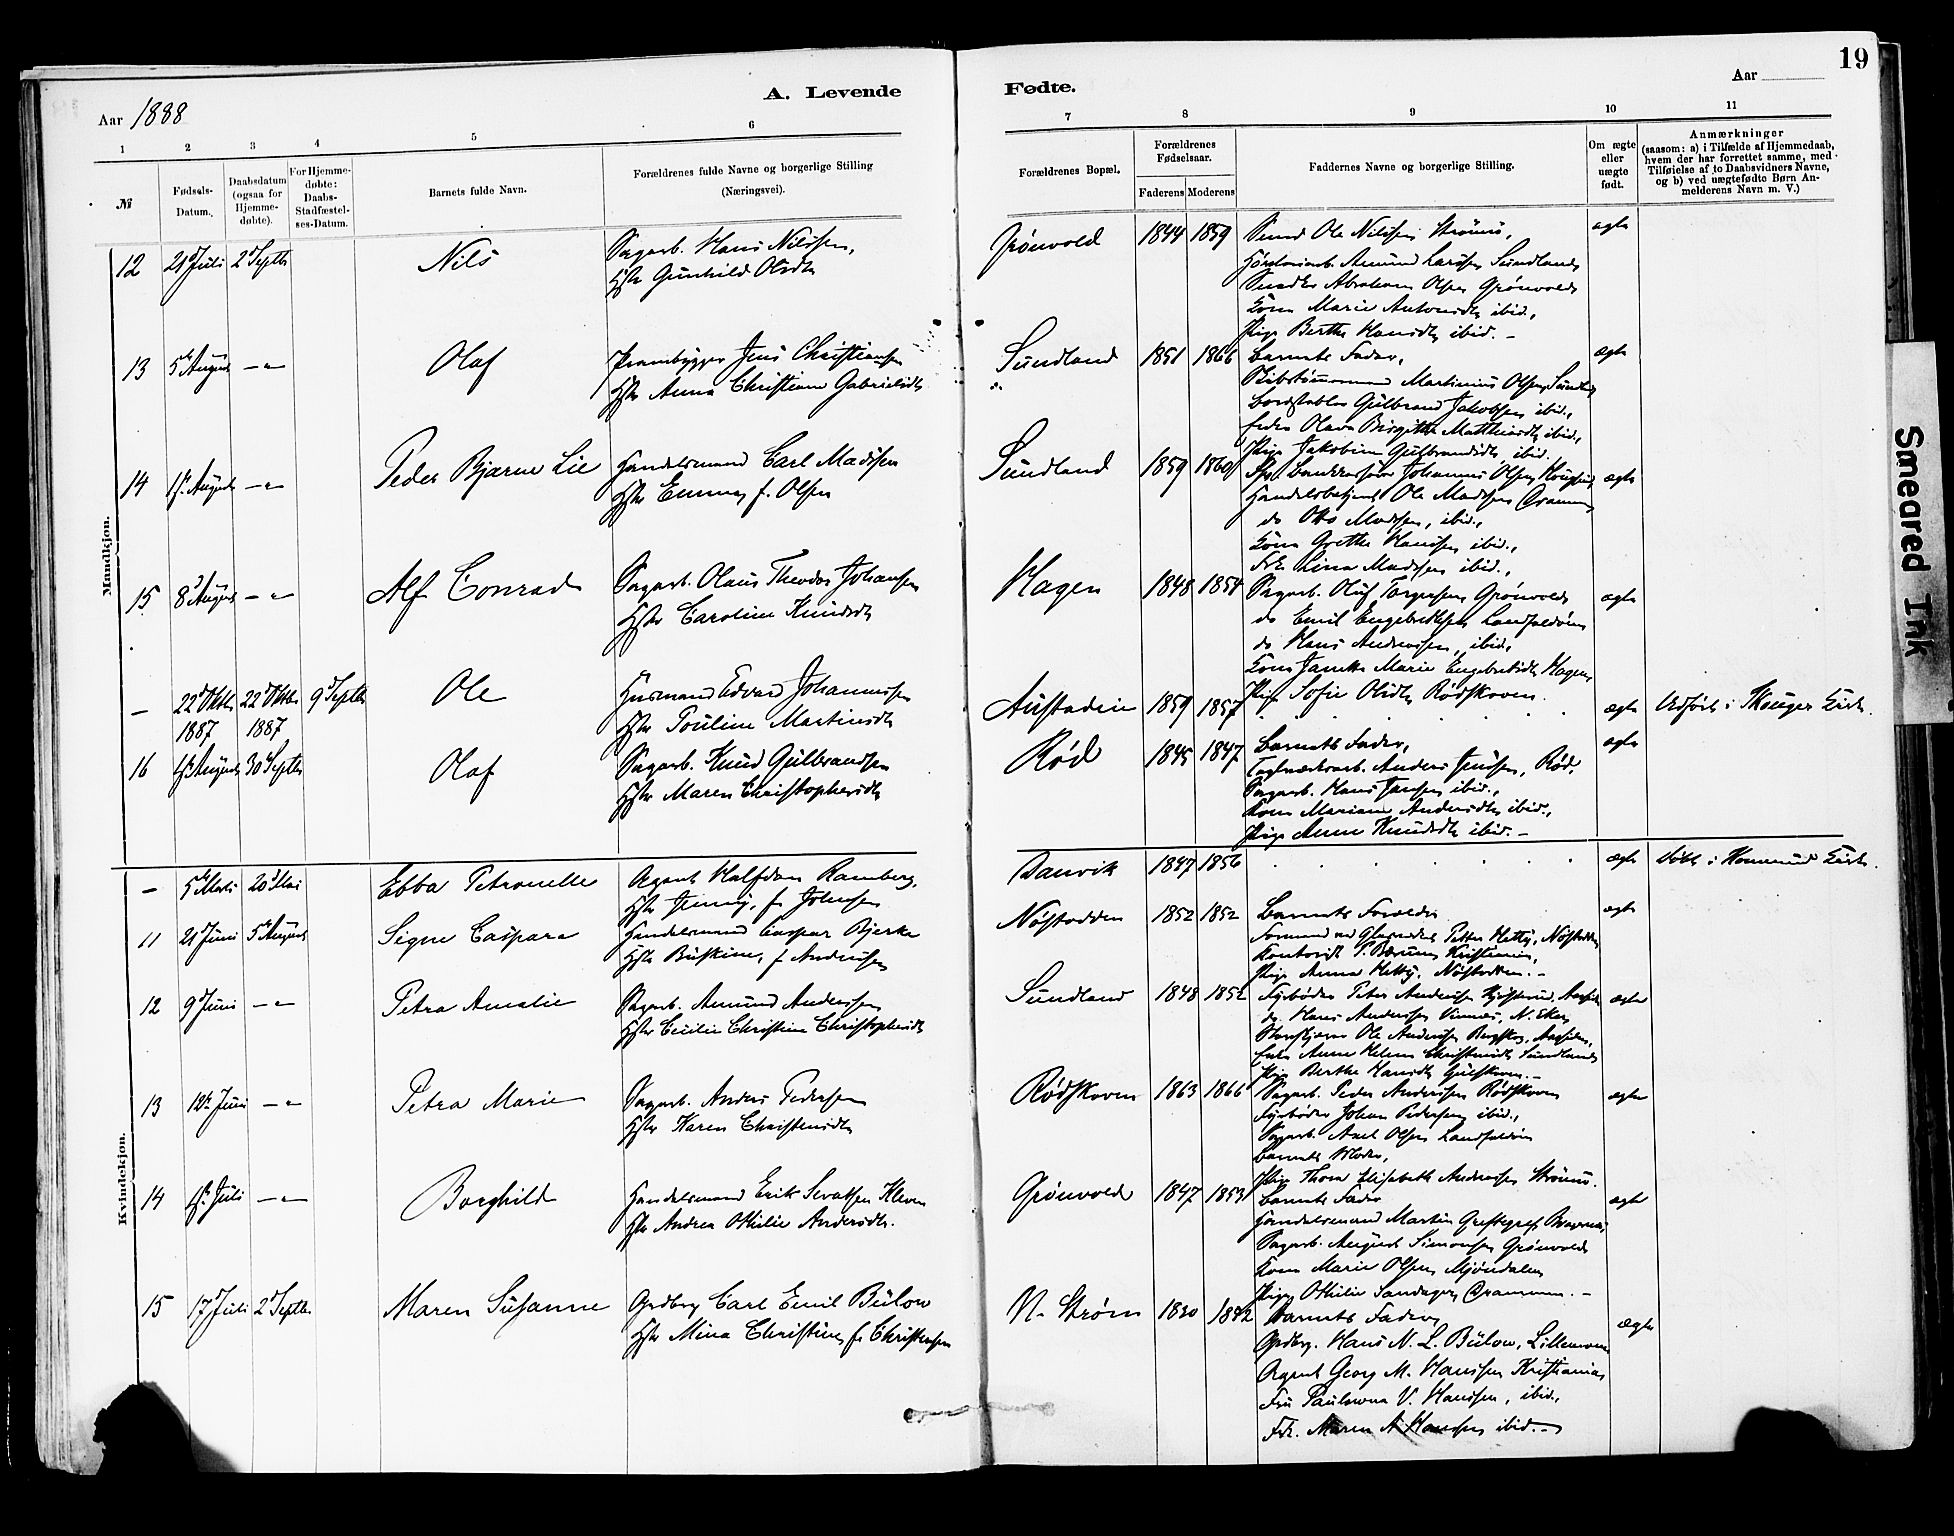 19
A. Levende
Fødte.
Aar
Aar 1888
1 2 3 4 5 6
7 8 9 10 11
№
Fødsels-
Datum.
Daabsdatum
(ogsaa for
Hjemme-
døbte).
For Hjemme-
døbte:
Daabs-
Stadfæstel-
ses-Datum.
Barnets fulde Navn.
Forældrenes fulde Navne og borgerlige Stilling
(Næringsvei).
Forældrenes Bopæl.
Forældrenes
Fødselsaar.
Faderens Moderens
Faddernes Navne og borgerlige Stilling.
Om ægte
eller
uægte
født.
Anmærkninger
(saasom: a) i Tilfælde af Hjemmedaab,
hvem der har forrettet samme, med
Tilføielse af to Daabsvidners Navne,
og b) ved uægtefødte Børn An-
melderens Navn m. V.)
Mandkjøn.
12 21 Juli 2 Septb Nils
Sagarb. Hans Nilssen,
Hstr Gunhild Olsdtr
Grønvold 1844 1859
Svend Ole Nilssen Strømsø,
Amund Larsen Sundland
Abraham Olsen Grønvold
Kone Marie Antonsdtr ibid.,
Pige Berthe Hansdtr ibid. –
ægte
13 5 August –"– Olaf
Prambygger Jens Christiansen
Hstr Anna Christiane Gabrielsdtr
Sundland 1851 1866
Barnets Fader,
Skibstømmermand Martinius Olsen, Sundland
Bordstabler Gulbrand Jakobsen ibid.,
Enke Olava Birgitte Mathisdtr ibid.,
Pige Jakobine Gulbrandsdtr ibid.
ægte
14 August –"– Peder Bjarne Lie
Handelsmand Carl Madsen
Hstr Emma f. Olsen
Sundland 1859 1860
Johannes Olsen
Handelsbetjent Ole Madsen Drammen
do Otto Madsen, ibid.,
Kone Grethe Hansen ibid.,
Frk. Lina Madsen ibid.,
ægte
15 8 August –"– Alf Conrad
Sagarb. Olaus Theodor Johansen
Hstr Caroline Knudsdtr
Hagen 1848 1854
Sagarb. Oluf Torgersen Grønvold
do Emil Engebretsen Landfaldøen
do Hans Andersen, ibid,
Kone Janette Marie Engebretsdtr Hagen
Pige Sofie Olsdtr Rødskoven.
ægte
– 22 Oktbr 22 Oktbr 9 Septbr Ole
1887 1887
Husmand Edvard Johannessen
Hstr Pouline Martinsdtr
Austadeie 1859 1857
ægte Udført i Skouger Kirke.
16 August 30 Septbr Olaf
Sagarb. Knud Gulbrandsen
Hstr Maren Christophersdtr
Rød 1845 1847
Barnets Fader,
Teglværksarb. Anders Jensen, Rød,
Sagarb. Hans Jensen ibid.,
Kone Mariane Andersdtr ibid.,
Pige Anne Knudsdtr ibid. –
ægte
Kvindekjøn.
– 5 Marts 20 Mai Ebba Petronelle
Agent Halfdan Ramberg,
Hstr Jenny, f. Johnsen
Danvik 1847 1856
ægte Døbt i Kirke.
11 21 Juni 5 August Signe Caspara
Handelsmand Caspar Bjerke
Hstr f. Andersen
Nøstodden 1852 1852
Barnets Forældre
Formand ved Glasværket Petter Hetty, Nøstodden
Kontorist P. Bærum, Kristiania,
Pige Anna Hetty, Nøstodden. –
ægte
12 9 Juni –"– Petra Amalie
Sagarb. Amund Andersen
Hstr Cecilie Christine Christophersdtr
Sundland 1848 1852
Fyrbøder Peter Andersen
do. Hans Andersen Vinnæs, N. Eker
Ole Andersen
Enke Anne Helene Christensdtr Sundland
Pige Berthe Hansdtr Gulskoven. –
ægte
13 12 Juni –"– Petra Marie
Sagarb. Anders Pedersen
Hstr Karen Christensdtr
Rødskoven 1863 1866
Sagarb. Peder Andersen Rødskoven
Fyrbøder Johan Pedersen ibid.,
Sagarb. Axel Olsen Landfaldøen
Barnets Moder,
Pige Thora Elisabeth Andersen Strømsø.
ægte
14 Juli –"– Borghild
Handelsmand Erik Klever
Hstr Andrea Othilie Andersdtr.
Grønvold 1847 1853
Barnets Fader
Handelsmand Martin Bragernes,
Sagarb. August Simonsen Grønvold
Kone Marie Olsen Mjøndalen
Pige Othilie Sandager Drammen. –
ægte
15 17 Juli 2 Septbr Maren Susanne
Grdbrg Carl Emil Bülow
Hstr Mina Christine f. Christensen
N. Strøm 1830 1842
Barnets Fader,
Grdbrg. Hans N. L. Bülow,
Agent Georg M. Hanssen Kristiania
Fru Paulowna V. Hanssen, ibid.,
Frk. Maren A Hanssen ibid. –
ægte
Smeared Ink